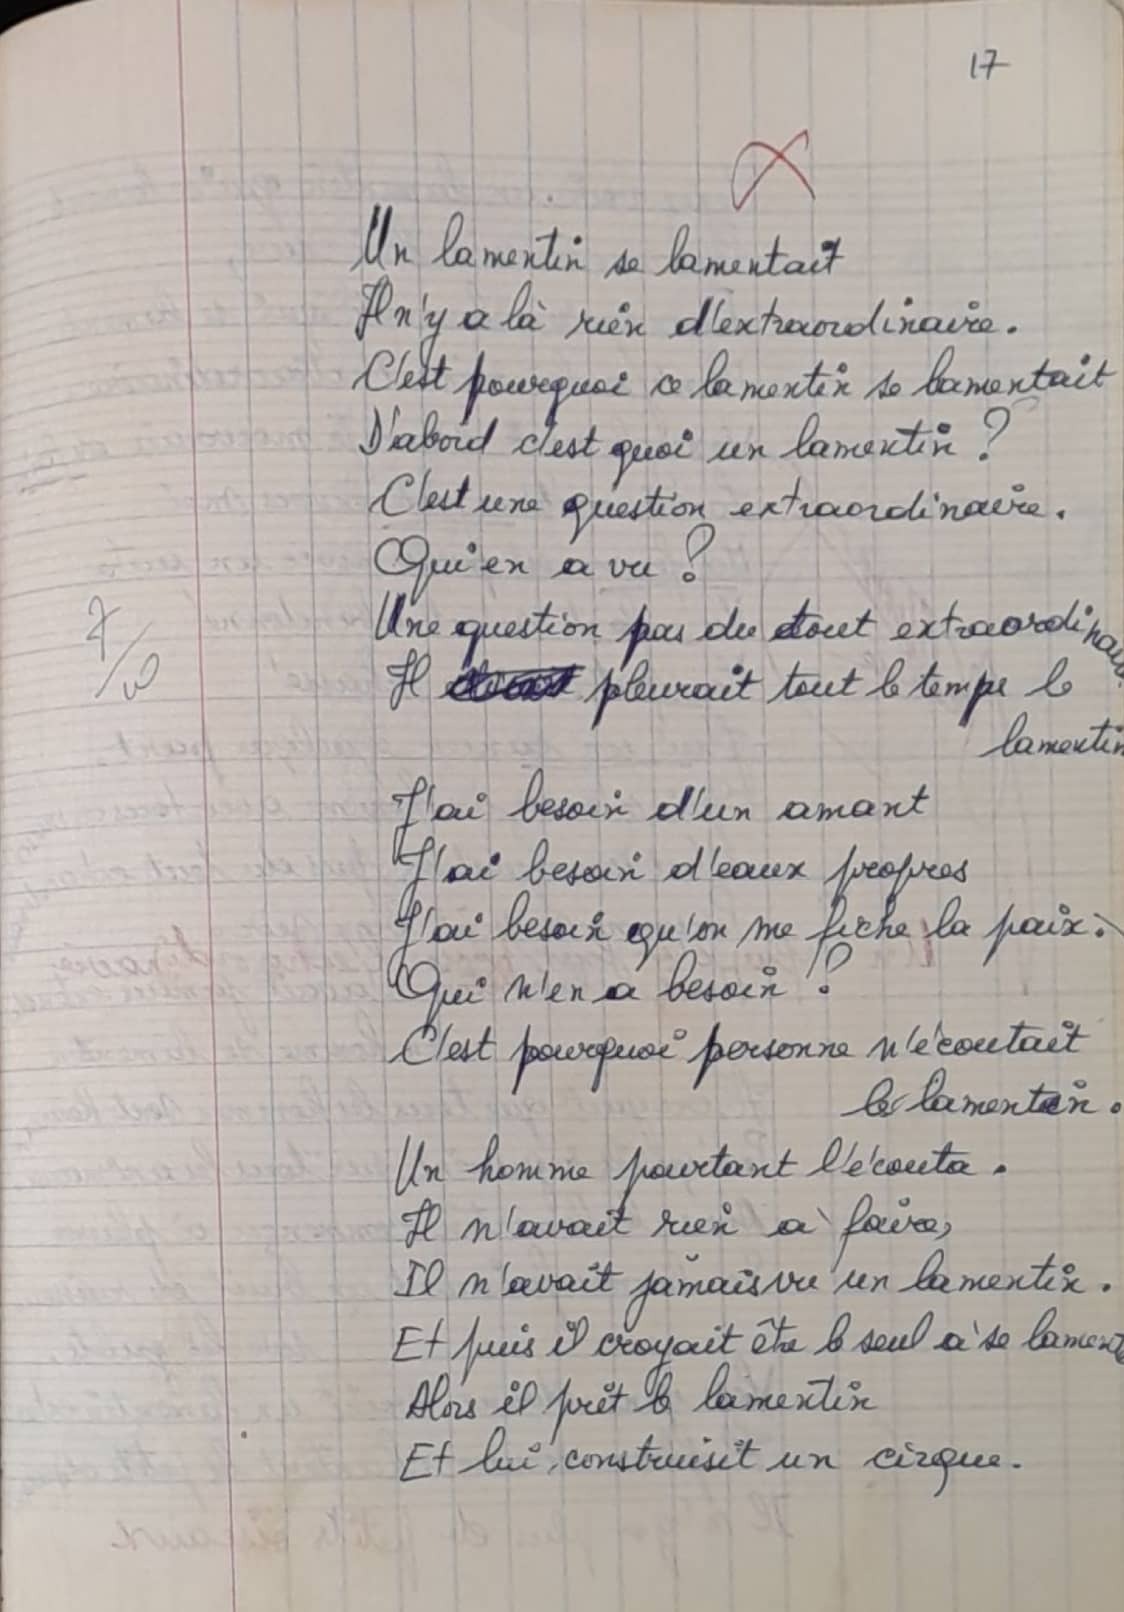 17
Un lamentin se lamentait
Il n'y a là rien d'extraordinaire.
C'est pourquoi ce lamentin se lamentait
D'abord c'est quoi un lamentin ?
C'est une question extraordinaire.
Qui en a vu ?
Une question pas du tout extraordinaire.
Il pleurait tout le temps le
lamentin
J'ai besoin d'un amant
J'ai besoin d'eaux propres
J'ai besoin qu'on me fiche la paix.
Qui n'en a besoin ?
C'est pourquoi personne n'écoutait
le lamentin.
Un homme pourtant l'écouta.
Il n'avait rien à faire,
Il n'avait jamais vu un lamentin.
Et puis il croyait être le seul à se lamente
Alors il prit le lamentin
Et lui construisit un cirque.